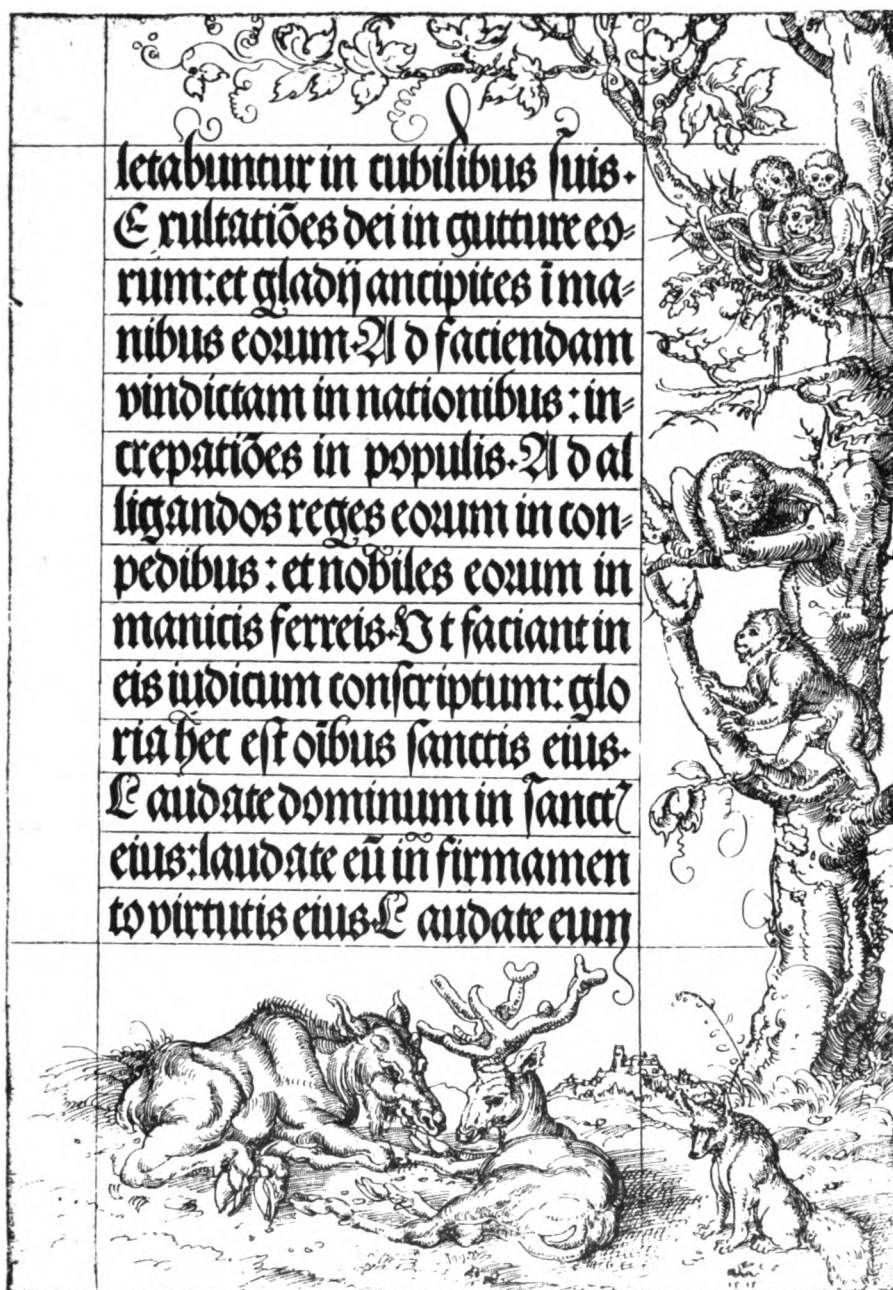 letabuntur in cubilibus suis.
Exultatiōes dei in gutture eo-
rum: et gladij ancipites ī ma-
nibus eorum. Ad faciendam
vindictam in nationibus: in-
crepatiōes in populis. Ad al
ligandos reges eorum in con-
pedibus: et nobiles eorum in
manicis ferreis. Ut faciant in
eis iudicum conscriptum: glo
ria hec est oībus sanctis eius.
Laudate dominum in sanctꝭ
eius: laudate eū in firmamen
to virtutis eius. Laudate eum